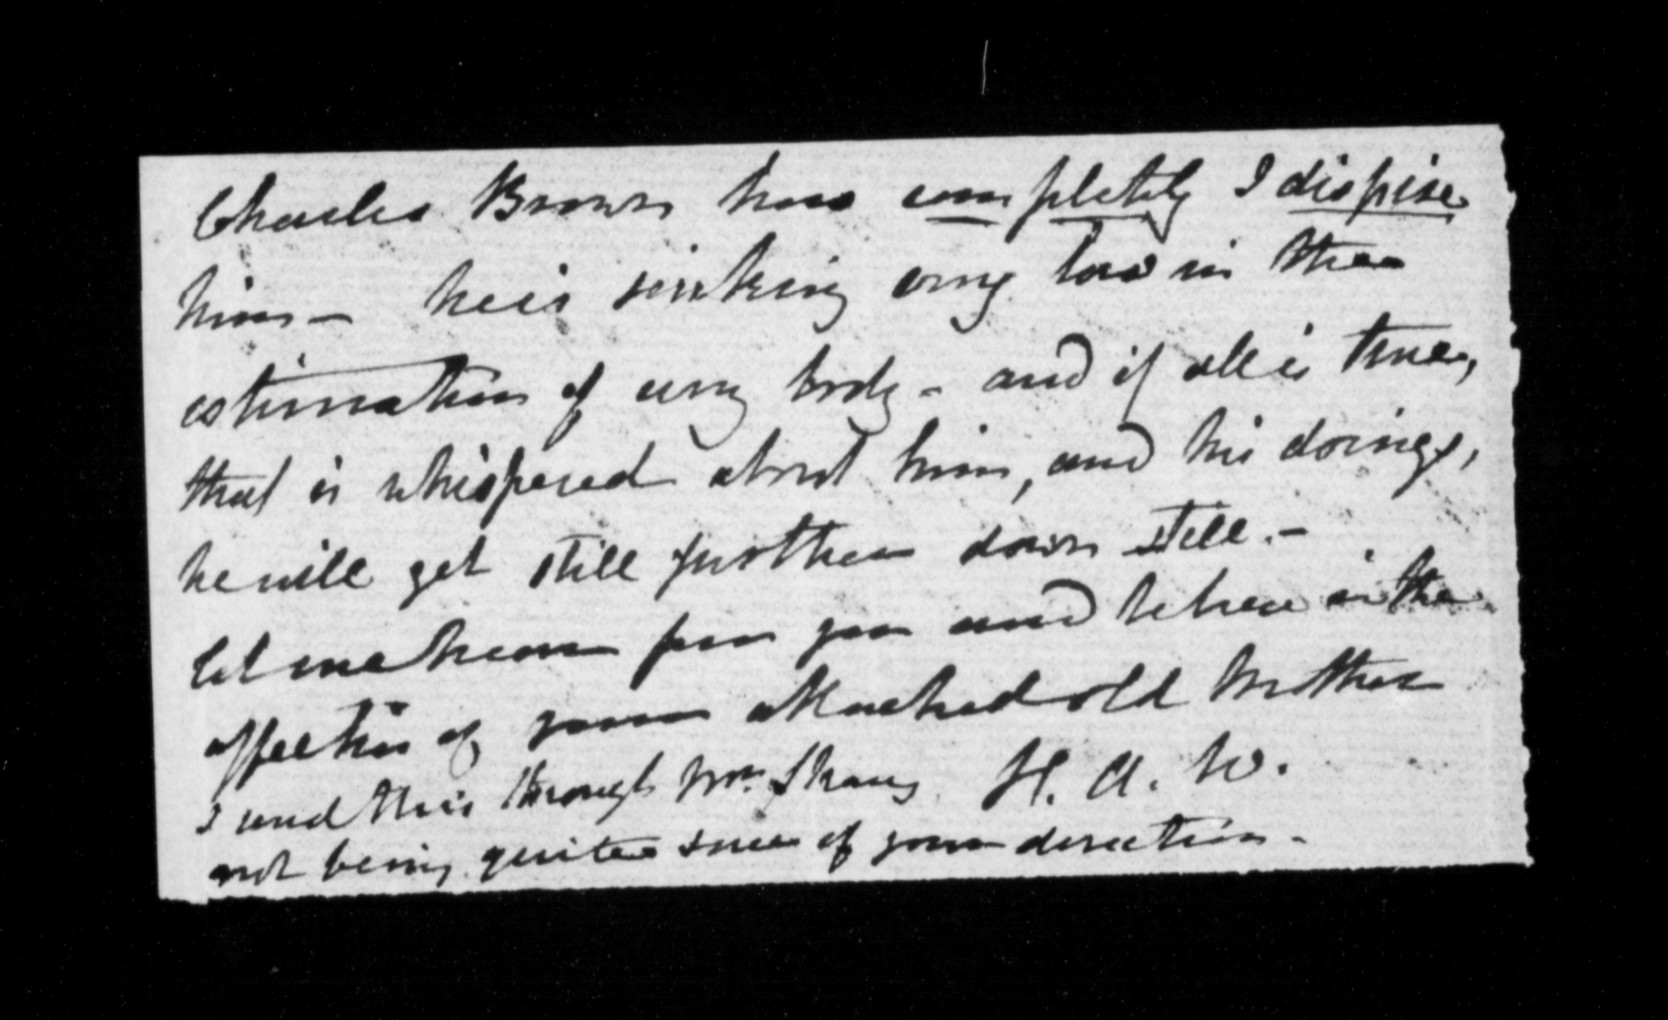 Charles Brown how completely I dispise
him - he is sinking very low in the
estimation of every body - and if all is true,
that is whispered about him, and his doings,
he will get still further down still. -
let me hear from you and believe in the
affection of your attached old Mother
H. A. W.
I send this through Wm.
not being quite sure of your direction -